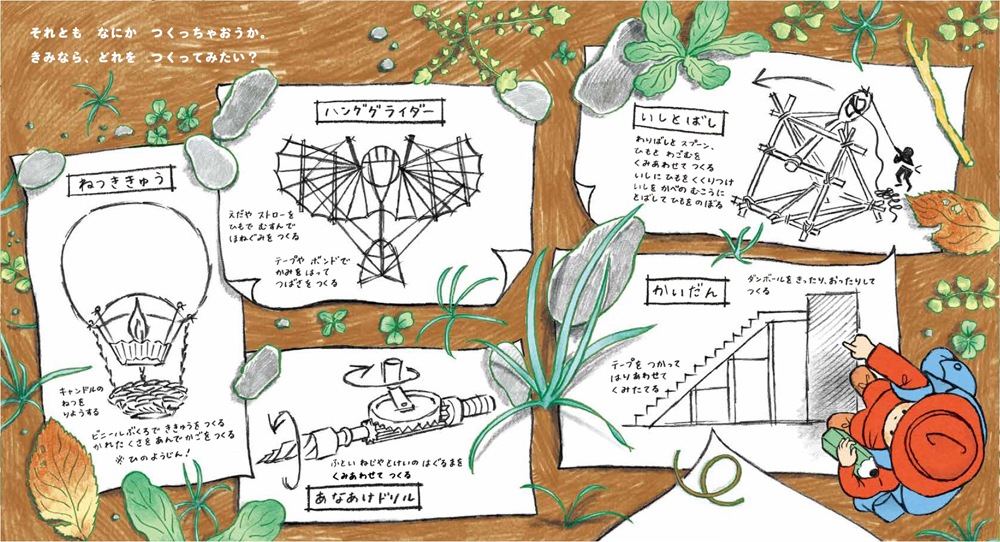 それとも なにか つくっちゃおうか。
きみなら、どれを つくってみたい？
ねつききゅう
キャンドルの
ねつを
りようする
ビニールぶくろで ききゅうを つくる
かれた くさを あんで かごを つくる
※ ひの ようじん！
ハンググライダー
えだや ストローを
ひもで むすんで
ほねぐみを つくる
テープや ボンドで
かみを はって
つばさを つくる
ふとい ねじや とけいの はぐるまを
くみあわせて つくる
あなあけドリル
いしとばし
わりばしと スプーン、
ひもと わごむを
くみあわせて つくる
いしに ひもを くくりつけ
いしを かべの むこうに
とばして ひもを のぼる
かいだん
ダンボールを きったり、おったりして
つくる
テープを つかって
はりあわせて
くみたてる